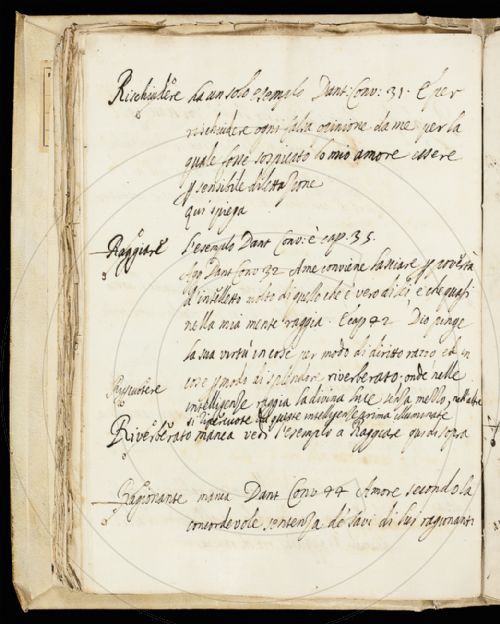 Rischiudere ha un solo esempio Dant: Conv: 31. E per
rischiudere ogni falsa opinione da me per la
quale fosse sospicato lo mio amore essere
p sensibile dilettazione
qui spiega
Raggiare l'esempio Dant Conv: è cap. 35.
Agg Dant Conv 32 A me conviene lasciare p povertà
d'intelletto molto di quello che è vero di lei, e che quasi
nella mia mente raggia. E cap 42 Dio pinge
la sua virtù in cose per modo di diritto razo ed in
cose p modo di splendore riverberato. onde nelle
Ripercuotere
intelligenze raggia la divina luce senza mezzo, nell'altre
si ripercuote da queste intelligenze prima illuminate
Riverberato manca vedi l'esempio a Raggiare qui di sopra
Ragionante manca Dant Conv 44 Amore secondo la
concordevole sentenza de savi di lui ragionanti